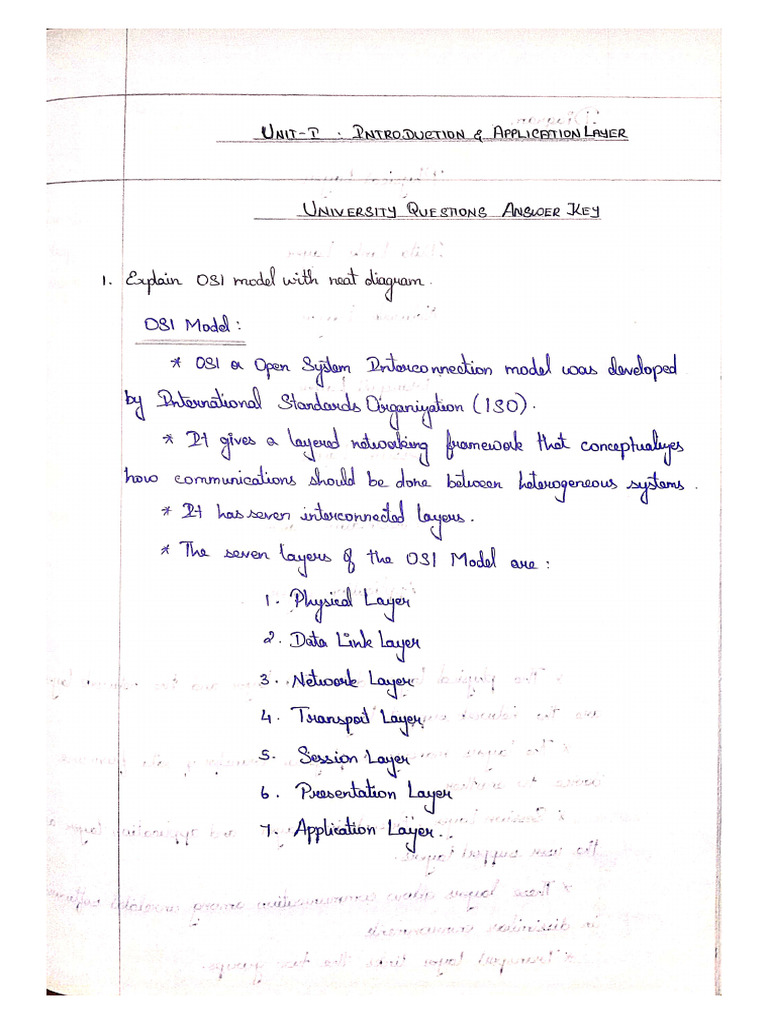 UNIT-I : INTRODUCTION & APPLICATION LAYER
UNIVERSITY QUESTIONS ANSWER KEY
1. Explain OSI model with neat diagram.
OSI Model:
* OSI or Open System Interconnection model was developed
by International Standards Organization (ISO).
* It gives a layered networking framework that conceptualizes
how communications should be done between heterogeneous systems.
* It has seven interconnected layers.
* The seven layers of the OSI Model are:
1. Physical Layer
2. Data Link Layer
3. Network Layer
4. Transport Layer
5. Session Layer
6. Presentation Layer
7. Application Layer.